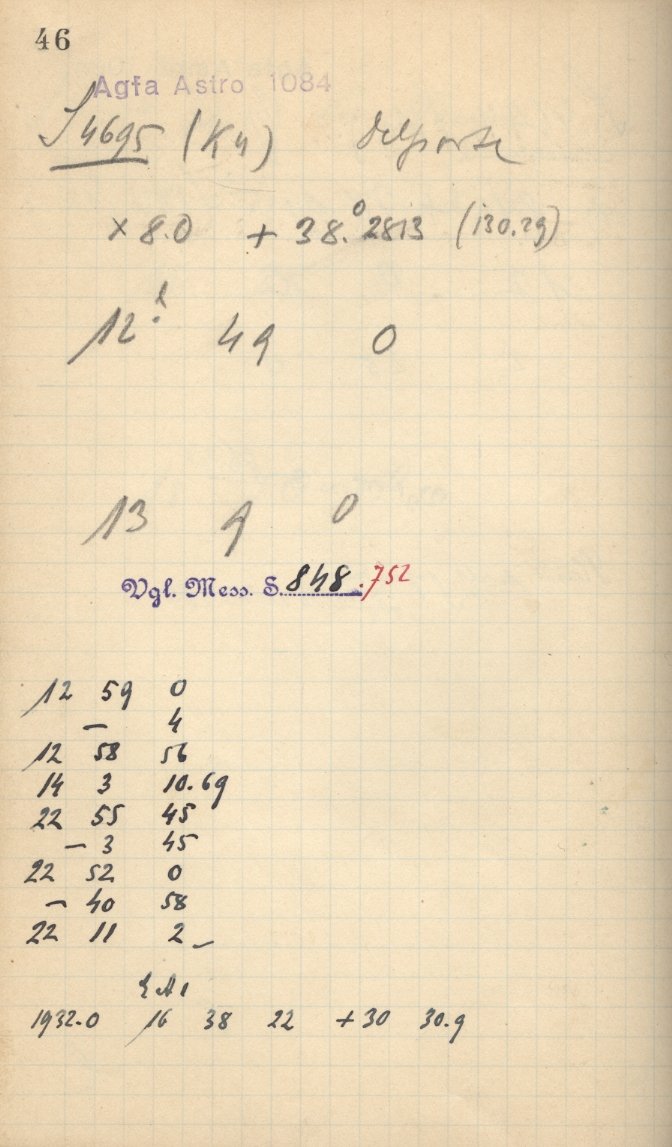 46
Agfa Astro 1084
S 4695 (K4) Delporte
× 8.0 + 38.°2813 (130.29)
12 49 0
13 9 0
Vgl. Mess. S. 848.752
12 59 0
– 4
12 58 56
14 3 10.69
22 55 45
– 3 45
22 52 0
– 40 58
22 11 2
1932.0 16 38 22 + 30 30.9